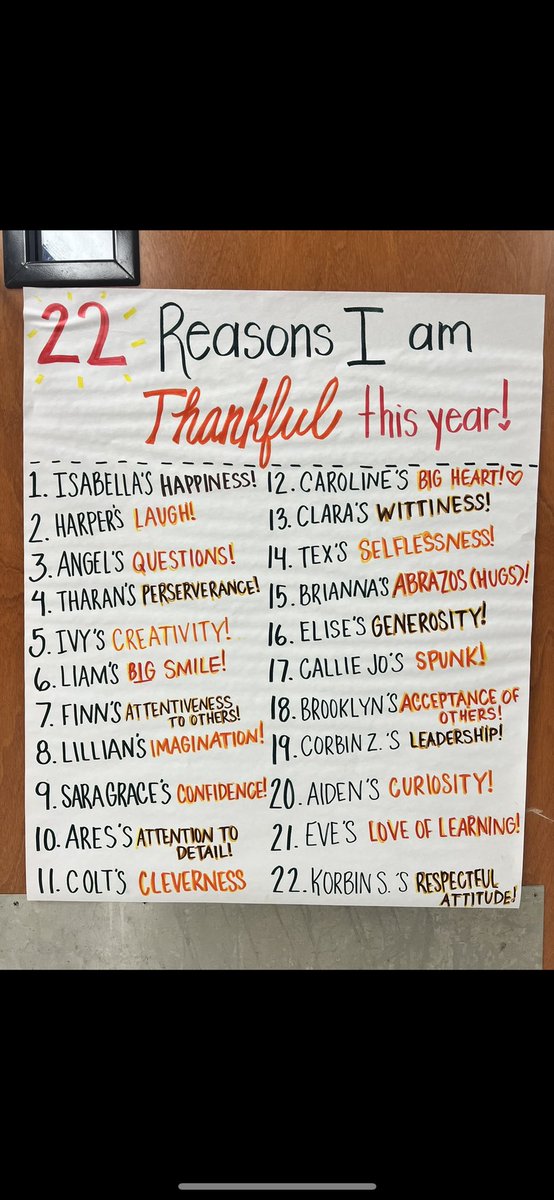 22 Reasons I am
Thankful this year!
1. ISABELLA'S HAPPINESS!
2. HARPER'S LAUGH!
3. ANGEL'S QUESTIONS!
4. THARAN'S PERSERVERANCE!
5. IVY'S CREATIVITY!
6. LIAM'S BIG SMILE!
7. FINN'S ATTENTIVENESS
TO OTHERS!
8. LILLIAN'S IMAGINATION!
9. SARA GRACE'S CONFIDENCE!
10. ARES'S ATTENTION TO
DETAIL!
11. COLT'S CLEVERNESS
12. CAROLINE'S BIG HEART!
13. CLARA'S WITTINESS!
14. TEX'S SELFLESSNESS!
15. BRIANNA'S ABRAZOS (HUGS)!
16. ELISE'S GENEROSITY!
17. CALLIE JO'S SPUNK!
18. BROOKLYN'S ACCEPTANCE OF
OTHERS!
19. CORBIN Z.'S LEADERSHIP!
20. AIDEN'S CURIOSITY!
21. EVE'S LOVE OF LEARNING!
22. KORBIN S.'S RESPECTFUL
ATTITUDE!